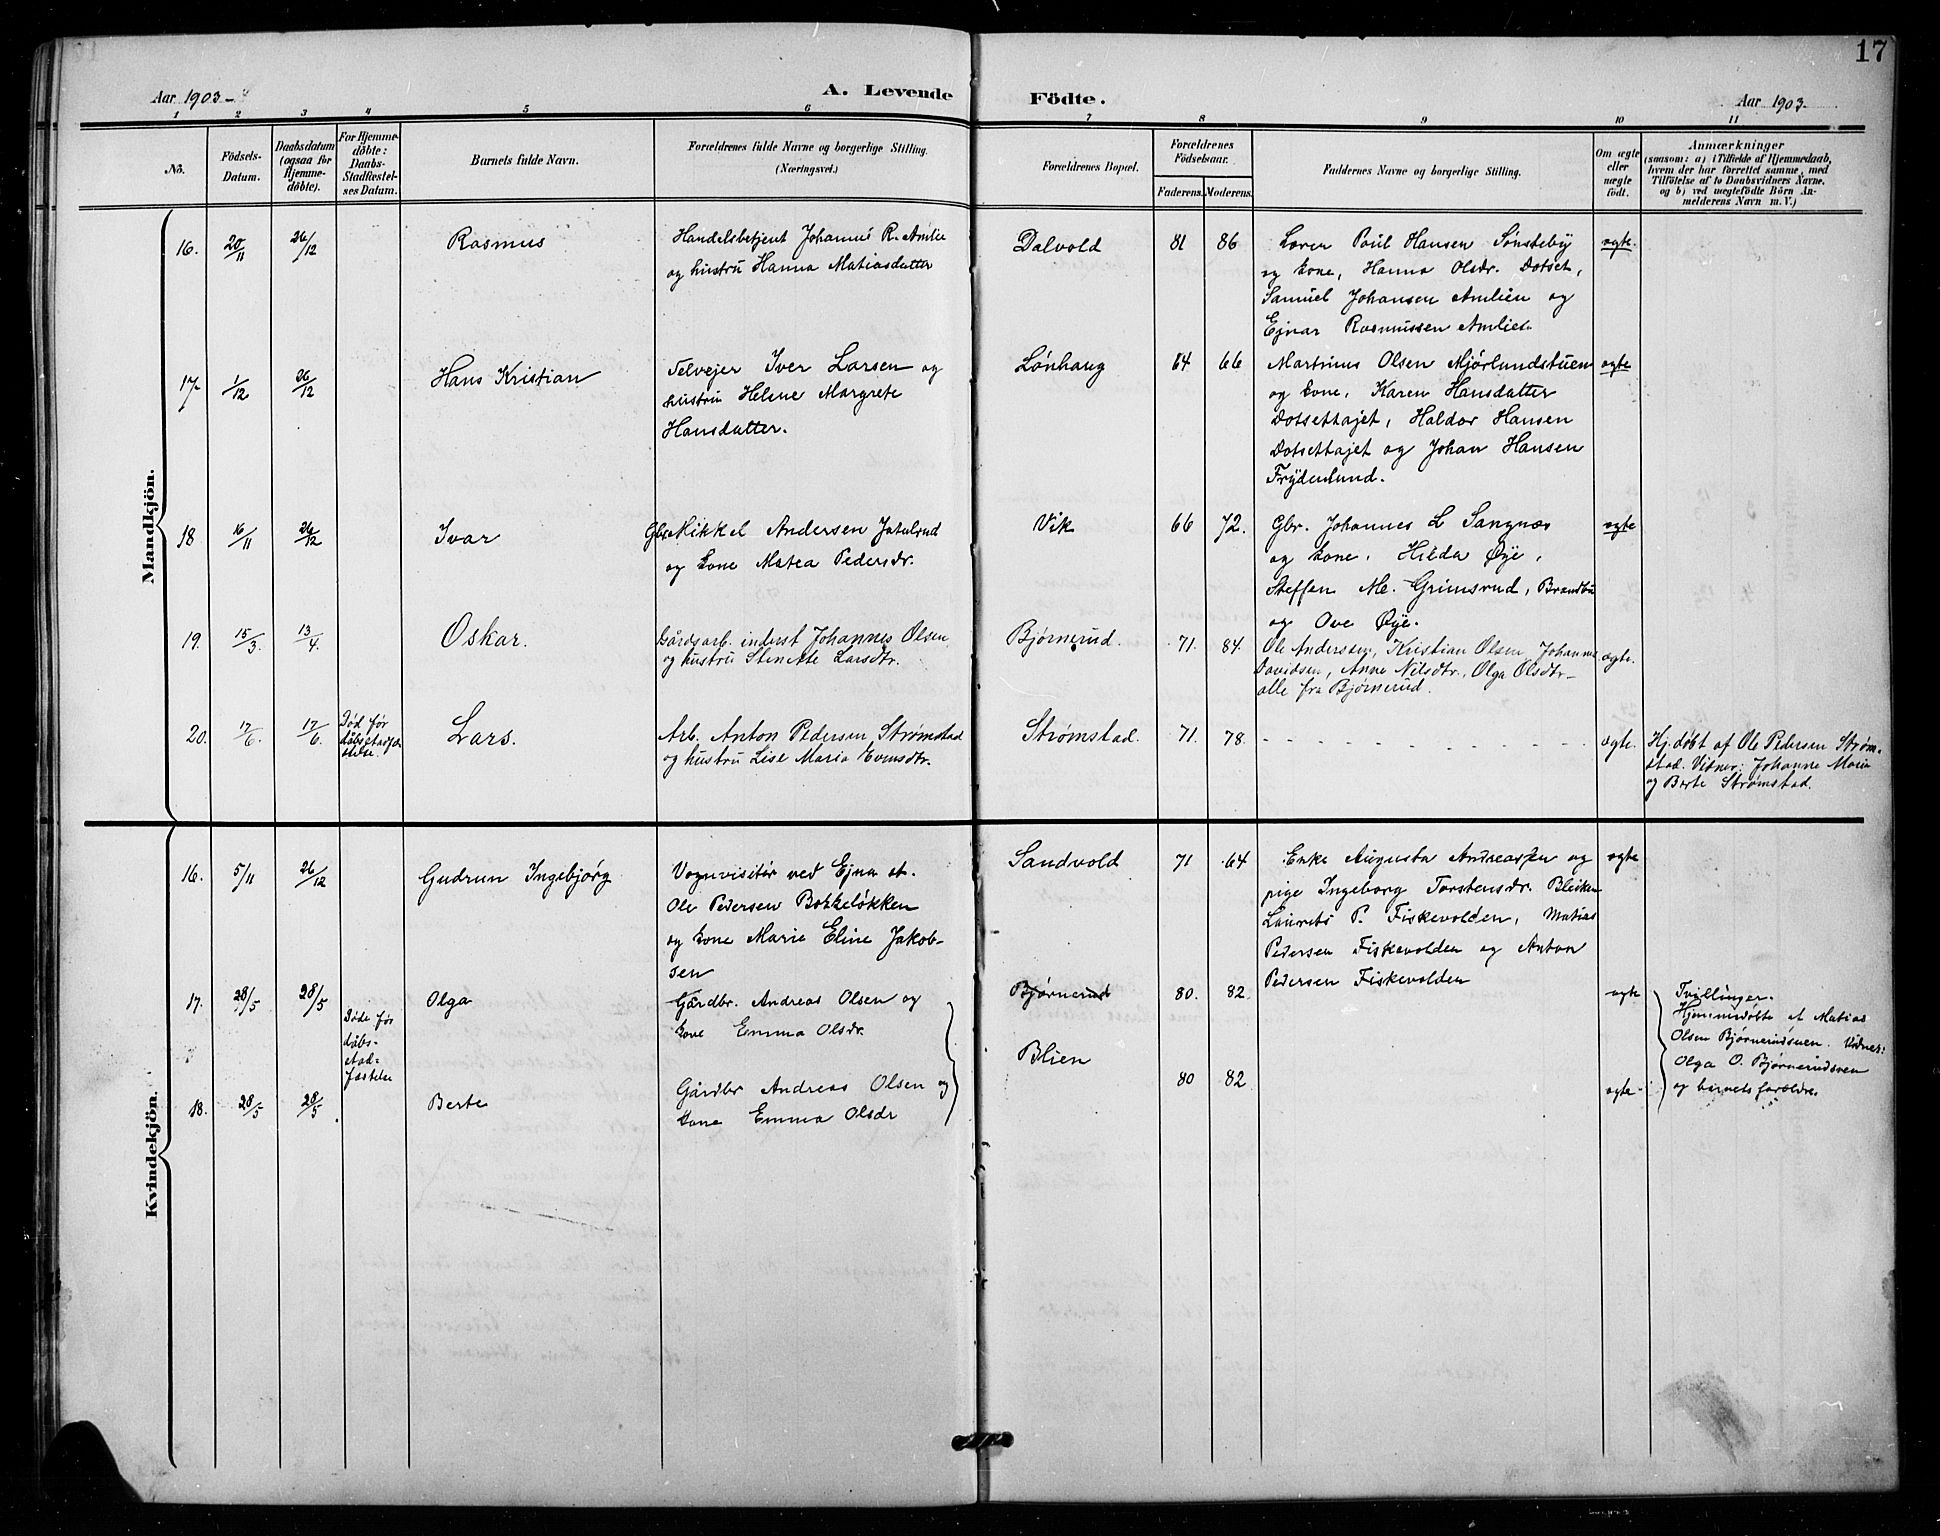 17
Aar 1903-4
A. Levende Födte.
Aar 1903.
1 2 3 4 5 6 7 8 9 10 11
No.
Födsels-
Datum.
Daabsdatum
(ogsaa for
Hjemme-
döbte).
For Hjemme-
döbte:
Daabs-
Stadfæstel-
ses Datum.
Barnets fulde Navn.
Forældrenes fulde Navne og borgerlige Stilling.
(Næringsvei.)
Forældrenes Bopæl.
Forældrenes
Födselsaar.
Faderens.
Moderens.
Faddernes Navne og borgerlige Stilling.
Om ægte
eller
uægte
födt.
Anmærkninger
(saasom: a) i Tilfælde af Hjemmedaab,
hvem der har forrettet samme, med
Tilföielse af to Daabsvidners Navne,
og b) ved uegtefödte Börn An-
melderens Navn m. V.)
Mandkjön.
16. 20/11 26/12 Rasmus
Handelsbetjent Johannes R. Amlie
og hustru Hanna Matiasdatter
Dalvold 81 86
Lærer Poul Hansen Sønsteby
og kone, Hanna Olsdr. Dotset,
Samuel Johansen Amlien og
Ejnar Rasmussen Amlien
ægte
17. 1/12 26/12 Hans Kristian
Selvejer Iver Larsen og
hustru Helene Margrete
Hansdatter.
Lønhaug 64 66
Martinus Olsen Mjørlundstuen
og kone, Karen Hansdatter
Dotsethajet, Haldor Hansen
Dotsethajet og Johan Hansen
Frydenlund.
ægte
18 16/11 26/12 Ivar
Gbr Mikkel Andersen
og kone Matea Pedersdr.
Vik 66 72.
Gbr. Johannes L Sangnæs
og kone, Hilda Øye,
Steffen M. Grimsrud, Brandbu
og Ove Øye.
ægte
19. 15/3 13/4 Oskar.
Gårdsarb. inderst Johannes Olsen
og hustru Stenette Larsdtr.
Bjørnerud. 71. 84.
Ole Andersen, Kristian Olsen, Johannes
Davidsen, Anne Nilsdtr., Olga Olsdtr-
alle fra Bjørnerud.
ægte.
20. 17/6. 17/6.
Død før
dåbsstadfæ
stelse.
Lars.
Arb. Anton Pedersen Strømstad
og hustru Lise Maria Evensdtr.
Strømstad. 71. 78. - - - - - - - - ægte.
Hj. døbt af Ole Pedersen Strøm-
stad. Vidner: Johanne Marie
og Berte Strømstad.
Kvindekjön.
16. 5/11 26/12 Gudrun Ingebjørg
Vognvisitør ved Ejna st.
Ole Pedersen Bakkeløkken
og kone Marie Eline Jakob-
sen
Sandvold 71 64
Enke Augusta Andreassen og
pige Ingeborg Torstensdr. Bleiken
Laurits P. Fiskevolden, Matias
Pedersen Fiskevolden og Anton
Pedersen Fiskevolden
ægte
17. 28/5 28/5
Døde før
dåbs-
stad-
fæstelse
Olga
Gårdbr. Andreas Olsen og
kone Emma Olsdr.
Bjørnerud 80. 82. ægte
Blien
18. 28/5 28/5 Berte
Gårdbr Andreas Olsen og
kone Emma Olsdr
80 82 ægte
Tvillinger.
Hjemmedøbte af Matias
Olsen Bjørnerudsveen. Vidner:
Olga O. Bjørnerudsveen
og barnets forældre.